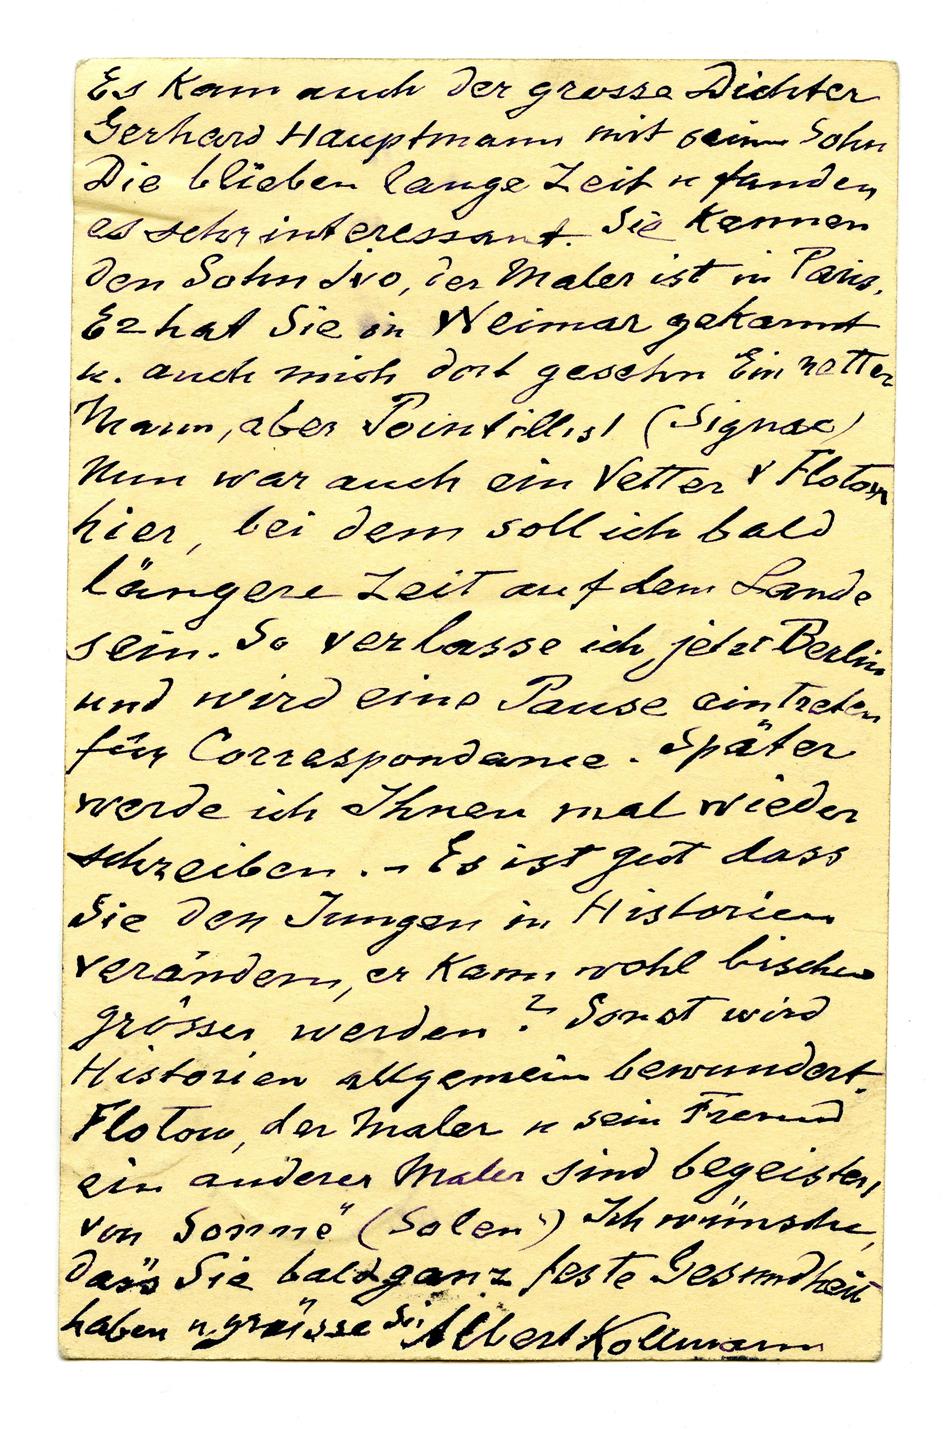 Es kam auch der grosse Dichter
Gerhard Hauptmann mit seinem Sohn
Die blieben lange Zeit u fanden
es sehr interessant. Sie kennen
den Sohn Ivo, der Maler ist in Paris.
Er hat Sie in Weimar gekannt
u. auch mich dort gesehn Ein netter
Mann, aber Pointillist (Signac)
Nun war auch ein Vetter v Flotow
hier, bei dem soll ich bald
längere Zeit auf dem Lande
sein. So verlasse ich jetzt Berlin
und wird eine Pause eintreten
für Correspondance. Später
werde ich Ihnen mal wieder
schreiben. – Es ist gut dass
Sie den Jungen in Historien
verändern, er kann wohl bischen
grösser werden? Sonst wird
Historien allgemein bewundert.
Flotow, der Maler u sein Freund
ein anderer Maler sind begeistert
von Sonne" (Solen") Ich wünsche,
dass Sie bald ganz feste Gesundheit
haben u. grüsse Sie Albert Kollmann